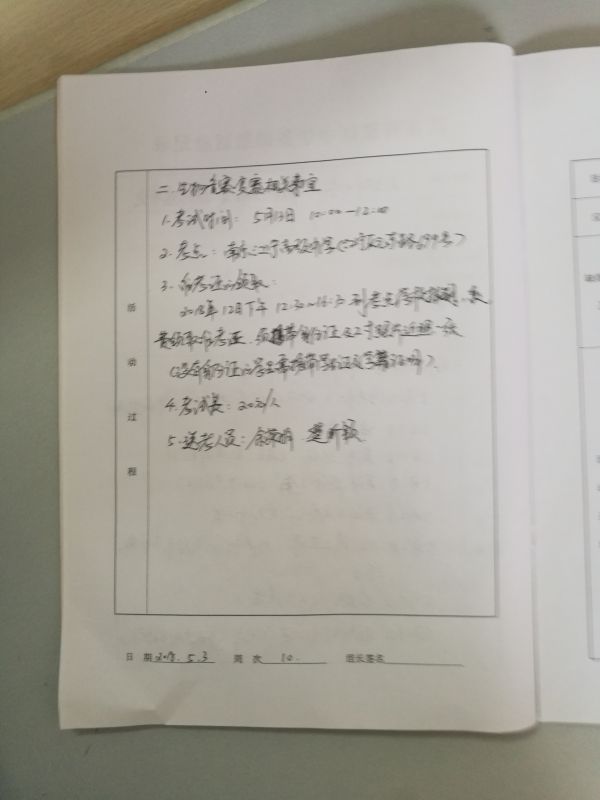 二.生物竞赛复赛相关事宜
1.考试时间: 5月13日 10:00—12:00
2.考点: 南京江宁高级中学(
3.准考证的领取:
2018年 12日下午 12:30~16:30 到考点学校
领取准考证,须携带身份证及2寸照片近照一张
(没有身份证的学生需携带学生证及学籍证明).
4.考试费: 20元/人
5.送考人员:
活
动
过
程
日 期 2018. 5. 3 周 次 10. 组长签名